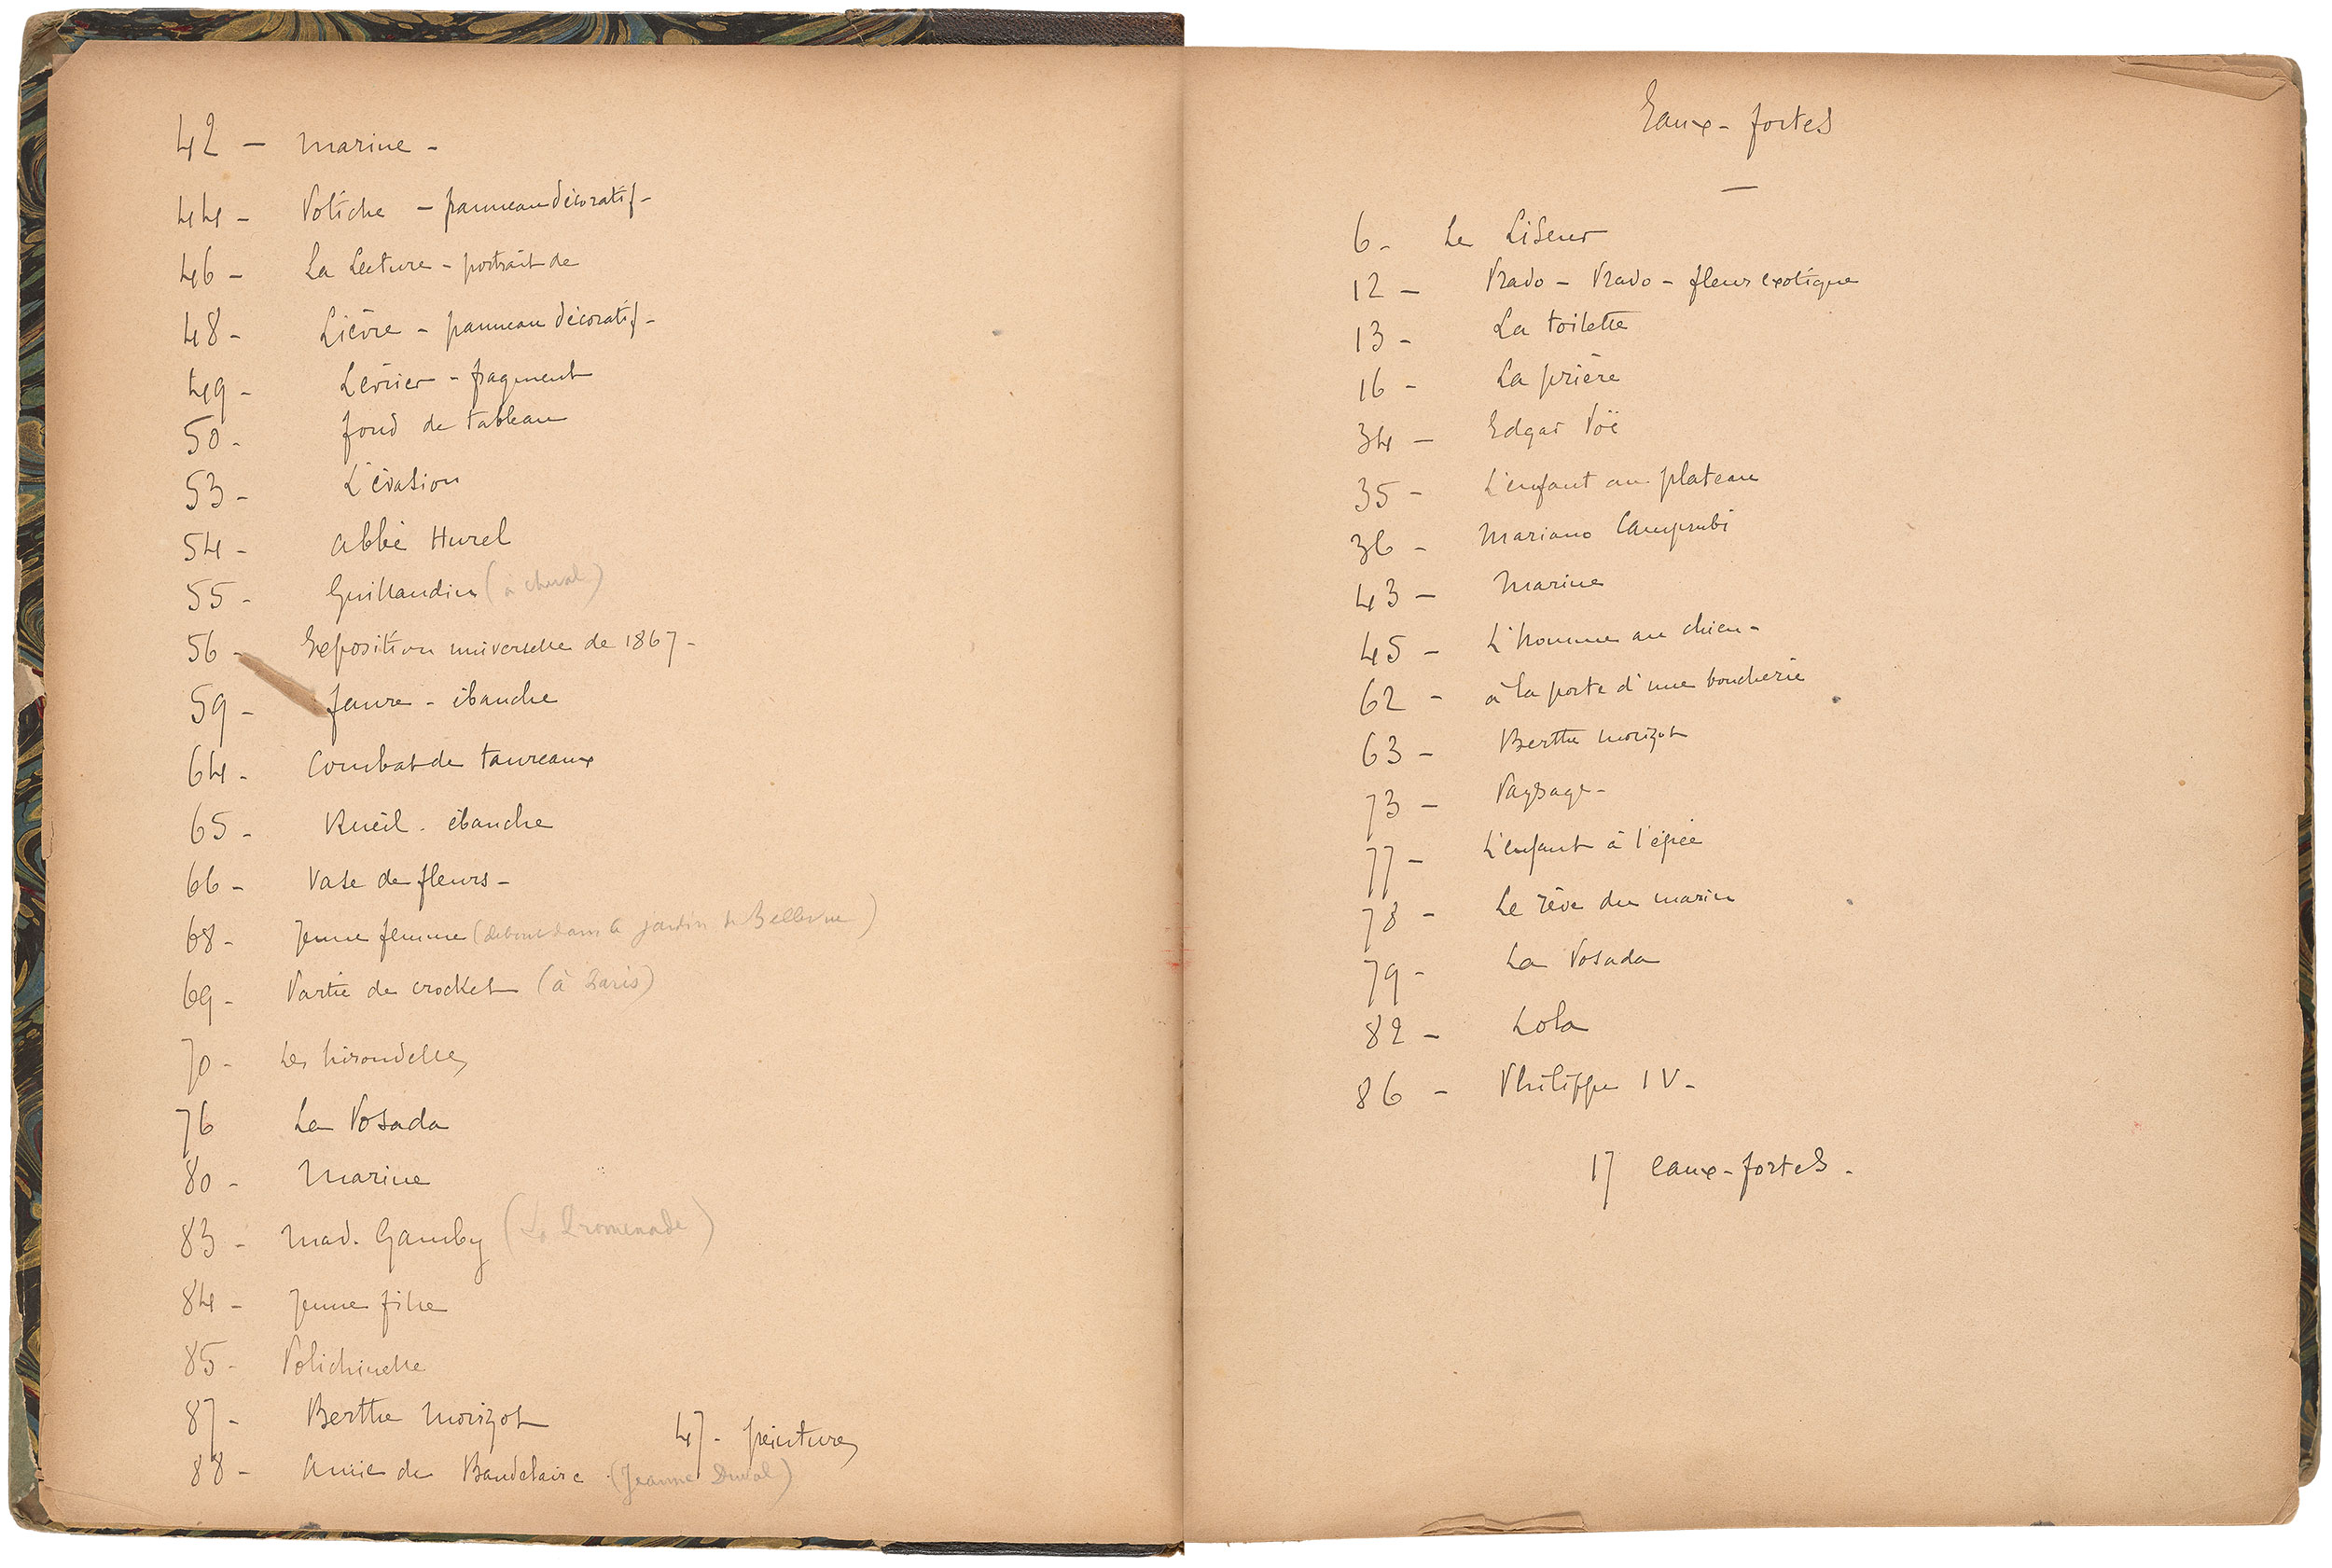 42 - Marine -
44 - Potiche - panneau décoratif -
46 - La Lecture - portrait de
48 - Lièvre - panneau décoratif -
49 - Lévrier - fragment
50 - fond de tableau
53 - L'évasion
54 - Abbé Hurel
55 - Guillaudin (à cheval)
56 - Exposition universelle de 1867 -
59 - Faure - ébauche
64 - Combat de taureaux
65 - Rueil - ébauche
66 - Vase de fleurs -
68 - Jeune femme (debout dans le jardin de Bellevue)
69 - Partie de crocket (à Paris)
70 - Les hirondelles
76 La Posada
80 - Marine
83 - Mad. Gamby (La Promenade)
84 - Jeune fille
85 - Polichinelle
87 - Berthe Morizot
47 - peintures
88 - Amie de Baudelaire (Jeanne Duval)
Eaux-fortes
6 - Le Liseur
12 - Prado - Prado - fleur exotique
13 - La toilette
16 - La prière
34 - Edgar Poë
35 - L'enfant au plateau
36 - Mariano Camprubi
43 - Marine
45 - L'homme au chien -
62 - à la porte d'une boucherie
63 - Berthe Morizot
73 - Paysage -
77 - L'enfant à l'épée
78 - Le rêve du marin
79 - La Posada
82 - Lola
86 - Philippe IV -
17 eaux-fortes -